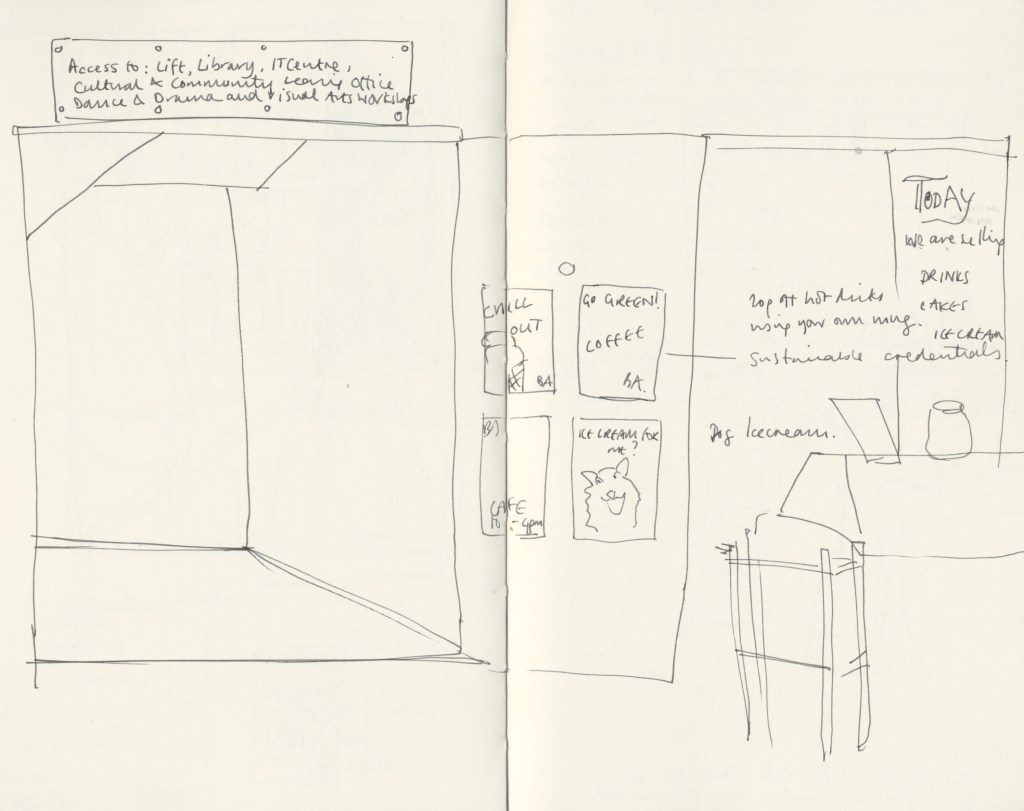 Access to: Lift, Library, IT Centre,
Cultural & Community Learning Office
Dance & Drama and Visual Arts Workshops
CHILL
OUT
BA
GO GREEN!
COFFEE
BA.
CAFE
10 :- 4pm
ICE CREAM FOR
ME?
20p off hot drinks
using your own mug.
Sustainable credentials
Dog Icecream.
TODAY
We are selling
DRINKS
CAKES
ICE CREAM